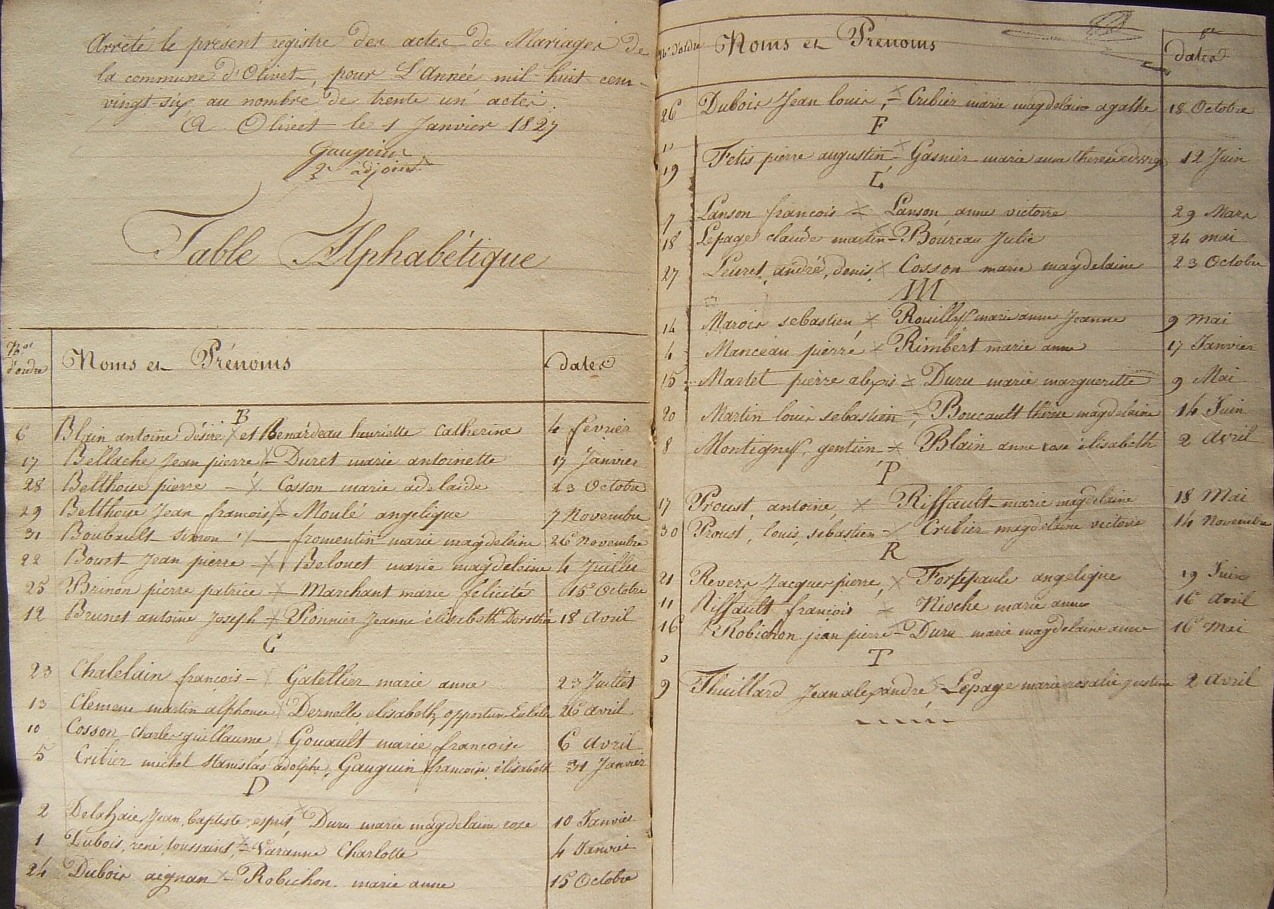 Arrêté le présent registre des actes de Mariages de
la commune d'Olivet, pour L'Année mil huit cent
vingt-six au nombre de trente un actes.
A Olivet le 1 Janvier 1827
2e adjoint
Table Alphabétique
Nos d'ordre Noms et Prénoms dates
B
6 Blain antoine désiré X et Benardeau henriette Catherine 4 février
17 Bellache Jean pierre X Duret marie antoinette 17 Janvier
28 Belthoise pierre X Cosson marie adelaide 23 Octobre
29 Belthoise Jean francois X Moulé angelique 7 Novembre
31 Boubault simon X fromentin marie magdelaine 26 Novembre
22 Bourt Jean pierre X Belouet marie magdelaine 4 Juillet
25 Brinon pierre patrice X Marchant marie félicité 15 Octobre
12 Brunet antoine Joseph X Pionnier Jeanne élisabeth Dorothée 18 avril
C
23 Chatelain françois X Gatellier marie anne 23 Juillet
13 Clement martin alphonse X elisabeth opportune 26 avril
10 Cosson charles guillaume Gouault marie francoise 6 avril
5 Cribier michel stanislas adolphe, Gauguin francoise élisabeth 31 Janvier
D
2 Delahaie, Jean, baptiste, esprit X Duru marie magdelaine rose 10 Janvier
1 Dubois, rené, toussaint, X Varanne Charlotte 4 Janvier
24 Dubois aignan X Robichon marie anne 15 Octobre
Nos d'ordre Noms et Prénoms dates
26 Dubois Jean louis, X Cribier marie magdelaine agathe 18 Octobre
F
19 Felis pierre augustin X Gasnier marie anne therese 12 Juin
L
7 Lanson françois X Lanson anne victoire 29 Mars
18 Lepage claude martin X Boureau Julie 24 mai
27 Leuret, andré, denis X Cosson marie magdelaine 23 Octobre
M
14 Marois sebastien X Rouilly marie anne Jeanne 9 Mai
4 Manceau pierre X Rimbert marie anne 17 Janvier
15 Martet pierre alexis X Duru marie marguerite 9 Mai
20 Martin louis sebastien X Boucault therese magdelaine 14 Juin
8 Montigny, gentien X Blain anne rose élisabeth 2 avril
P
17 Proust antoine, X Riffault marie magdelaine 18 Mai
30 Proust, louis, sébastien X Cribier magdelaine victoire 14 Novembre
R
21 Revers Jacques pierre, X Fortepaule angelique 19 Juin
11 Riffault françois X Nioche marie anne 16 avril
16 Robichon jean pierre X Duru marie magdelaine anne 16 Mai
T
9 Thuillard Jean alexandre X Lepage marie rosalie justine 2 avril